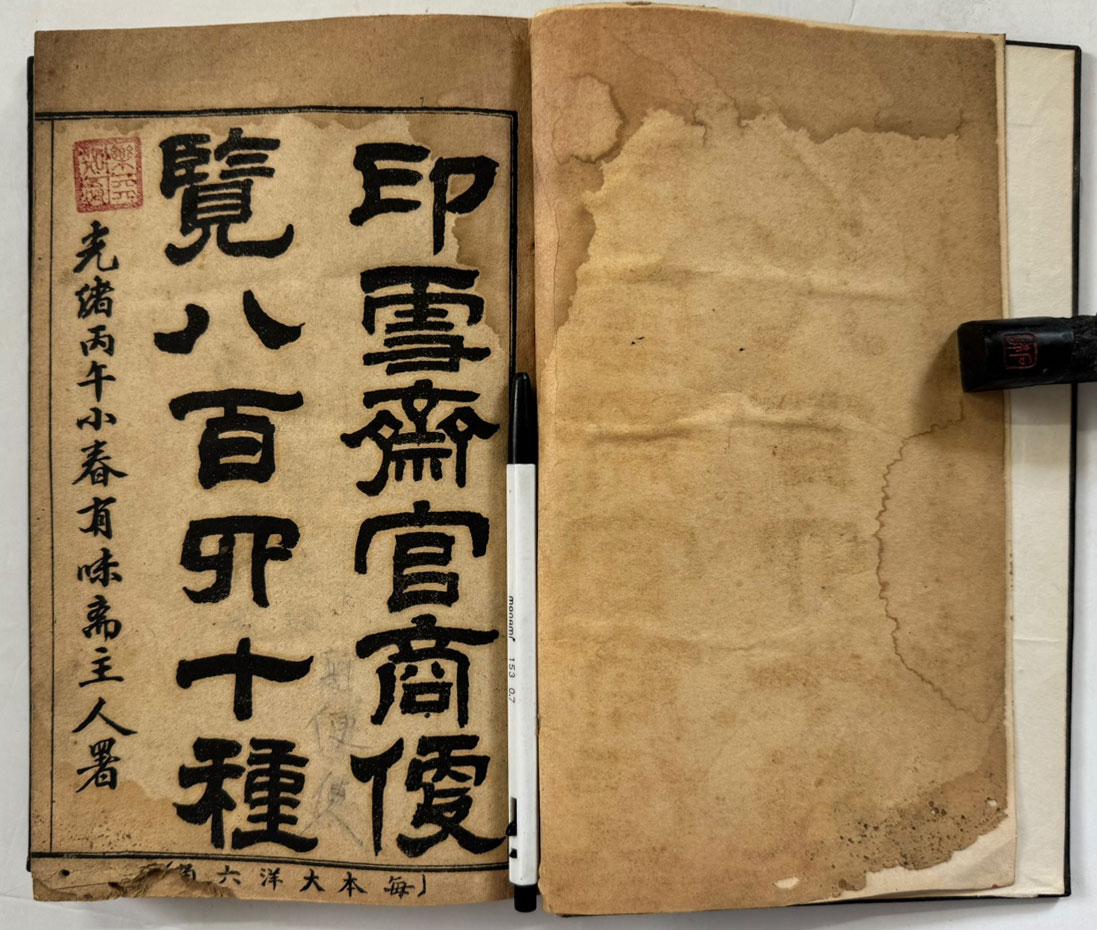 印雪齋官商便
覽八百四十種
光緒丙午小春有味斋主人署
每本大洋六角
便
monami 153 0.7